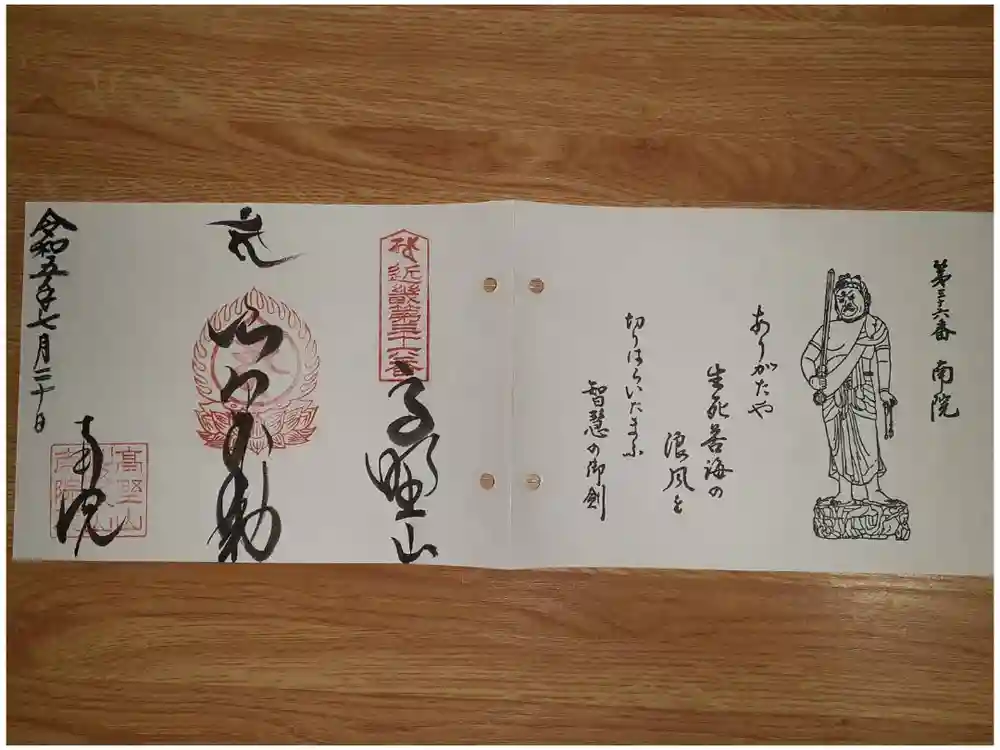 第三十六番 南院
ありがたや
生死苦海の
浪風を
切りはらいたまふ
智慧の御剣
近畿第三十六番
高野山
浪切不動
南院
令和五年七月二十日